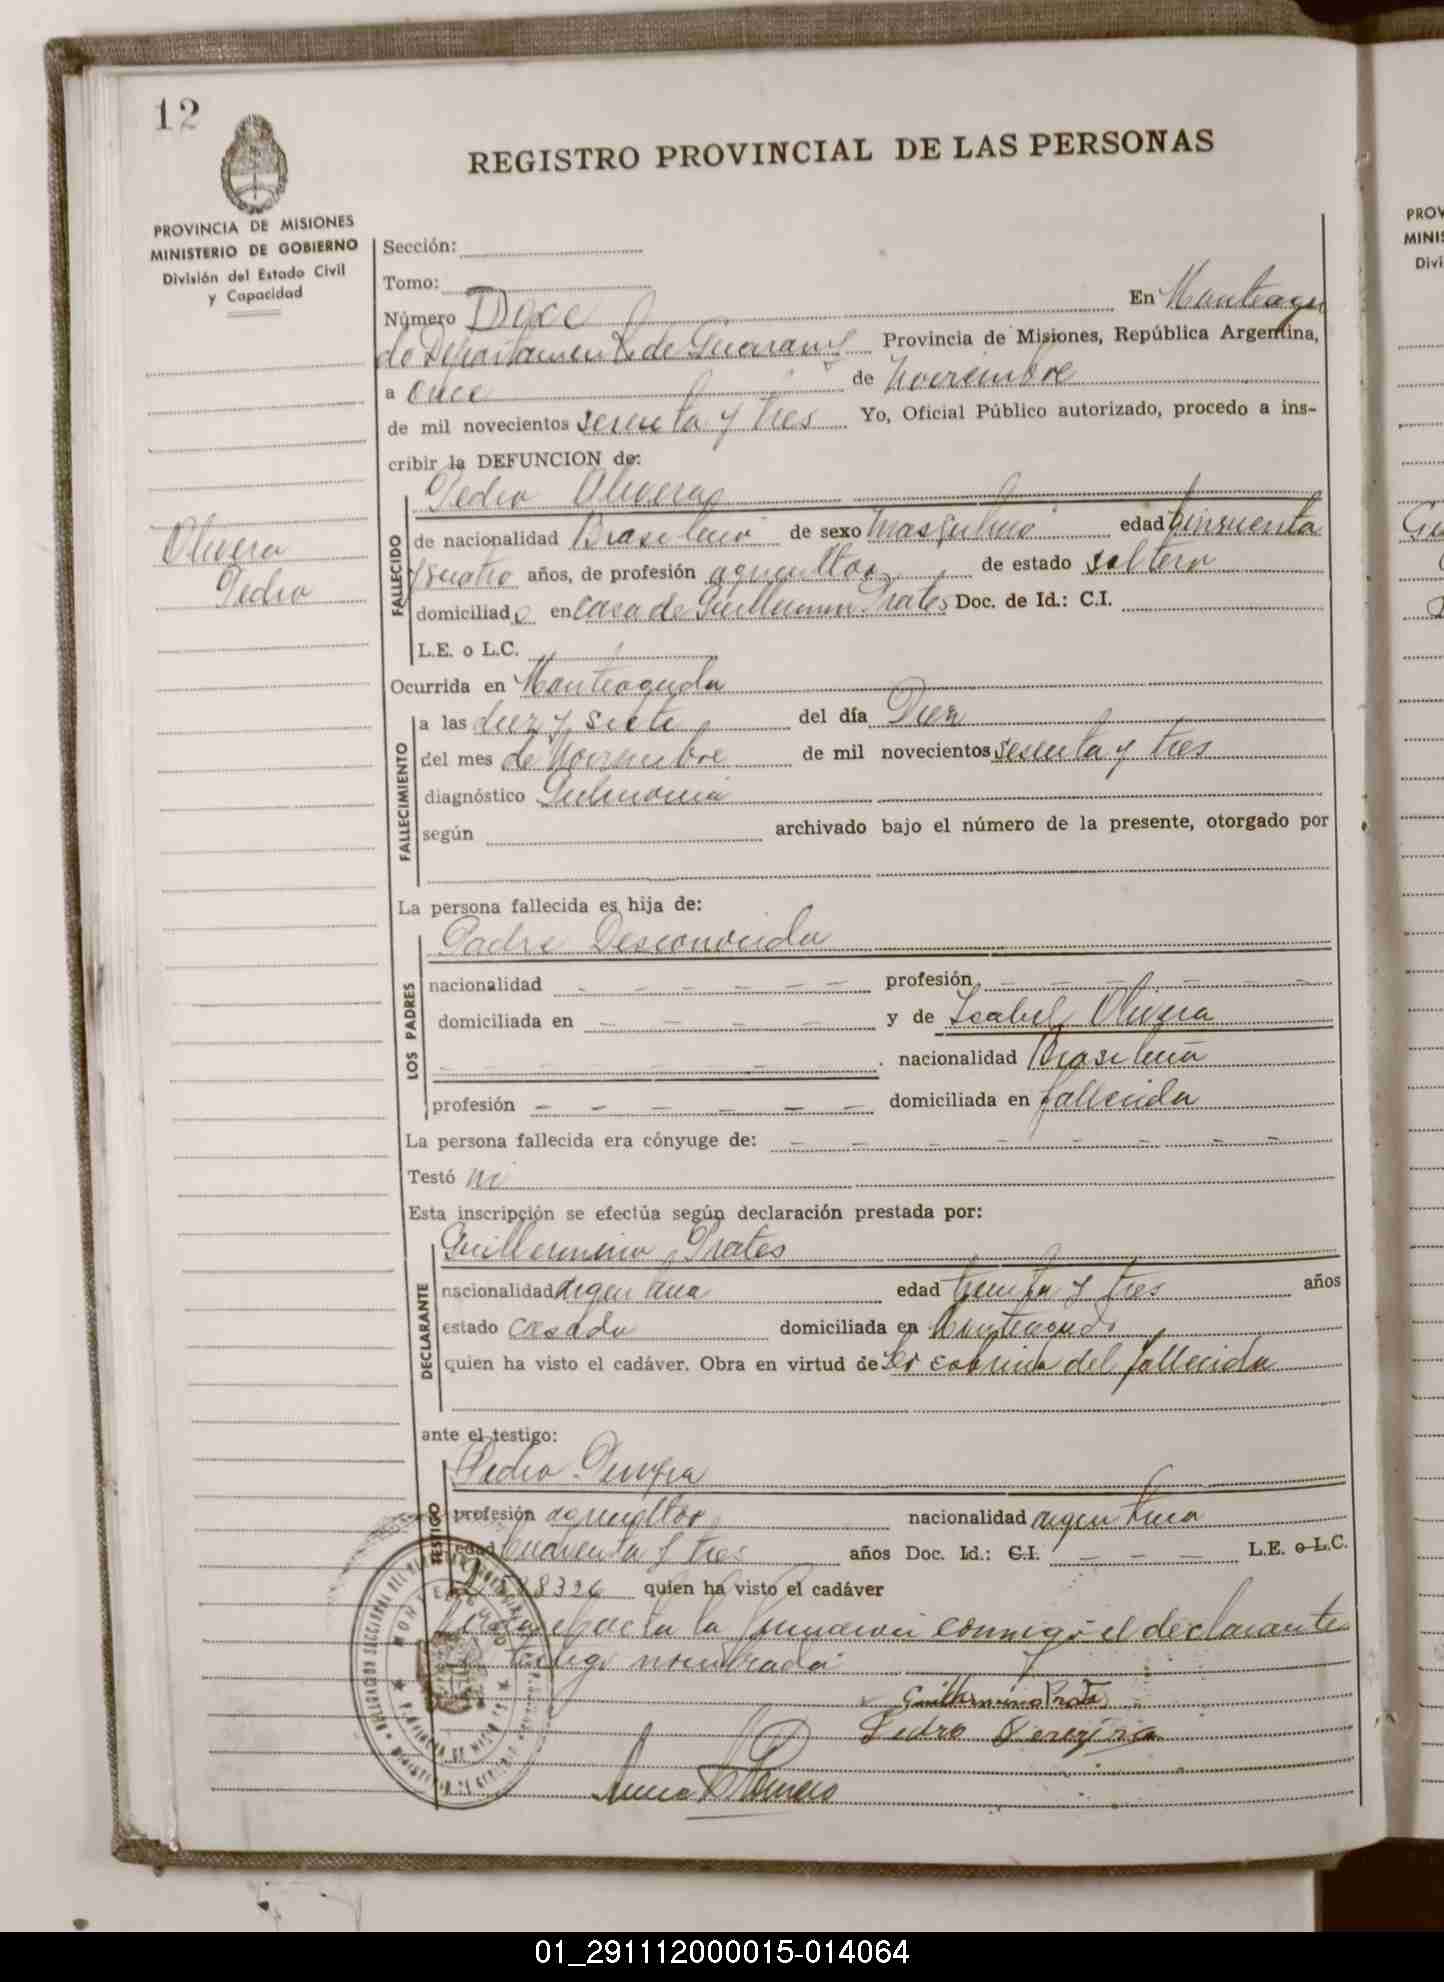 12
REGISTRO PROVINCIAL DE LAS PERSONAS
PROVINCIA DE MISIONES
MINISTERIO DE GOBIERNO
División del Estado Civil
y Capacidad
Sección:
Tomo:
Número Doce En Monteagu
do Departamento de Guarany Provincia de Misiones, República Argentina,
a once de Noviembre
de mil novecientos sesenta y tres Yo, Oficial Público autorizado, procedo a ins-
cribir la DEFUNCION de:
Pedro Olivera
Olivera
Pedro
FALLECIDO
de nacionalidad Brasileño de sexo Masculino edad cinsuenta
y cuatro años, de profesión agricultor de estado soltero
domiciliado en casa de Guillermino Prates Doc. de Id.: C.I.
L.E. o L.C.
Ocurrida en Monteagudo
FALLECIMIENTO
a las diez y siete del día Diez
del mes de Noviembre de mil novecientos sesenta y tres
diagnóstico Pulmonia
según archivado bajo el número de la presente, otorgado por
La persona fallecida es hija de:
LOS PADRES
Padre Desconocido
nacionalidad - - - - - - profesión - - - - - - -
domiciliada en - - - - y de Isabel Olivera
- - - - - - - . nacionalidad Brasileña
profesión - - - - - - domiciliada en fallecida
La persona fallecida era cónyuge de: - - - - - - - -
Testó no
Esta inscripción se efectúa según declaración prestada por:
DECLARANTE
Guillermino Prates
nacionalidad argentina edad treinta y tres años
estado casado domiciliada en Monteagudo
quien ha visto el cadáver. Obra en virtud de ser sobrino del fallecido
ante el testigo:
TESTIGO
Pedro
profesión agricultor nacionalidad argentina
edad cuarenta y tres años Doc. Id.: C.I. - - - L.E. o L.C.
8326 quien ha visto el cadáver
la firman conmigo el declarante
y testigo nombrado
Guillermino Prates
Pedro
Romero
PROV
MINIS
Divi
01_291112000015-014064